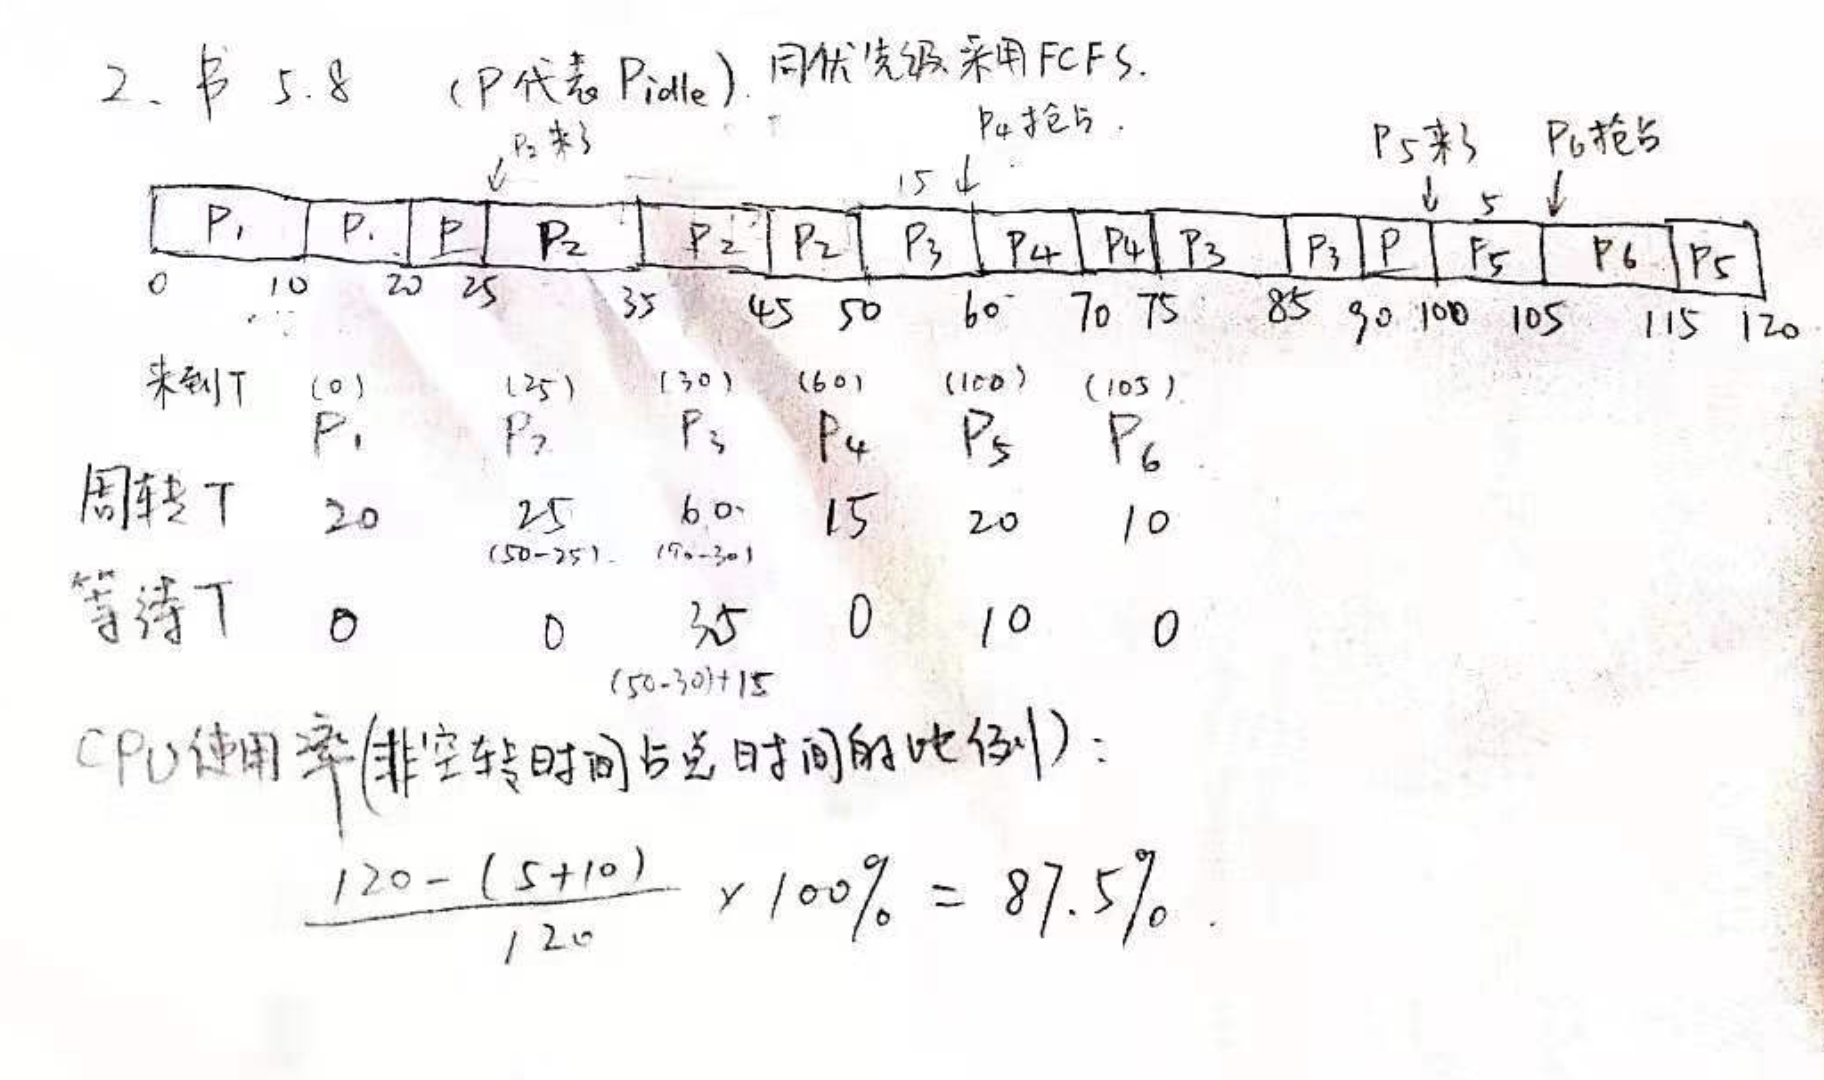 2、书 5.8 (P代表Pidle). 同优先级采用FCFS.
P2来了 P4抢占. P5来了 P6抢占
15 5
P1 P1 P P2 P2 P2 P3 P4 P4 P3 P3 P P5 P6 P5
0 10 20 25 35 45 50 60 70 75 85 90 100 105 115 120
来到T (0) (25) (30) (60) (100) (105)
P1 P2 P3 P4 P5 P6
周转T 20 25 60 15 20 10
(50-25). (90-30)
等待T 0 0 35 0 10 0
(50-30)+15
CPU使用率(非空转时间占总时间的比例):
120-(5+10)
120
×100% = 87.5%.